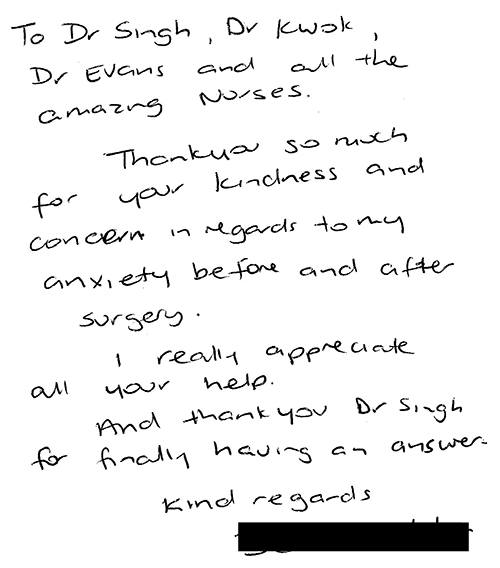 To Dr Singh, Dr Kwok,
Dr Evans and all the
amazing Nurses.
Thankyou so much
for your kindness and
concern in regards to my
anxiety before and after
surgery.
I really appreciate
all your help.
And thank you Dr Singh
for finally having an answer.
Kind regards